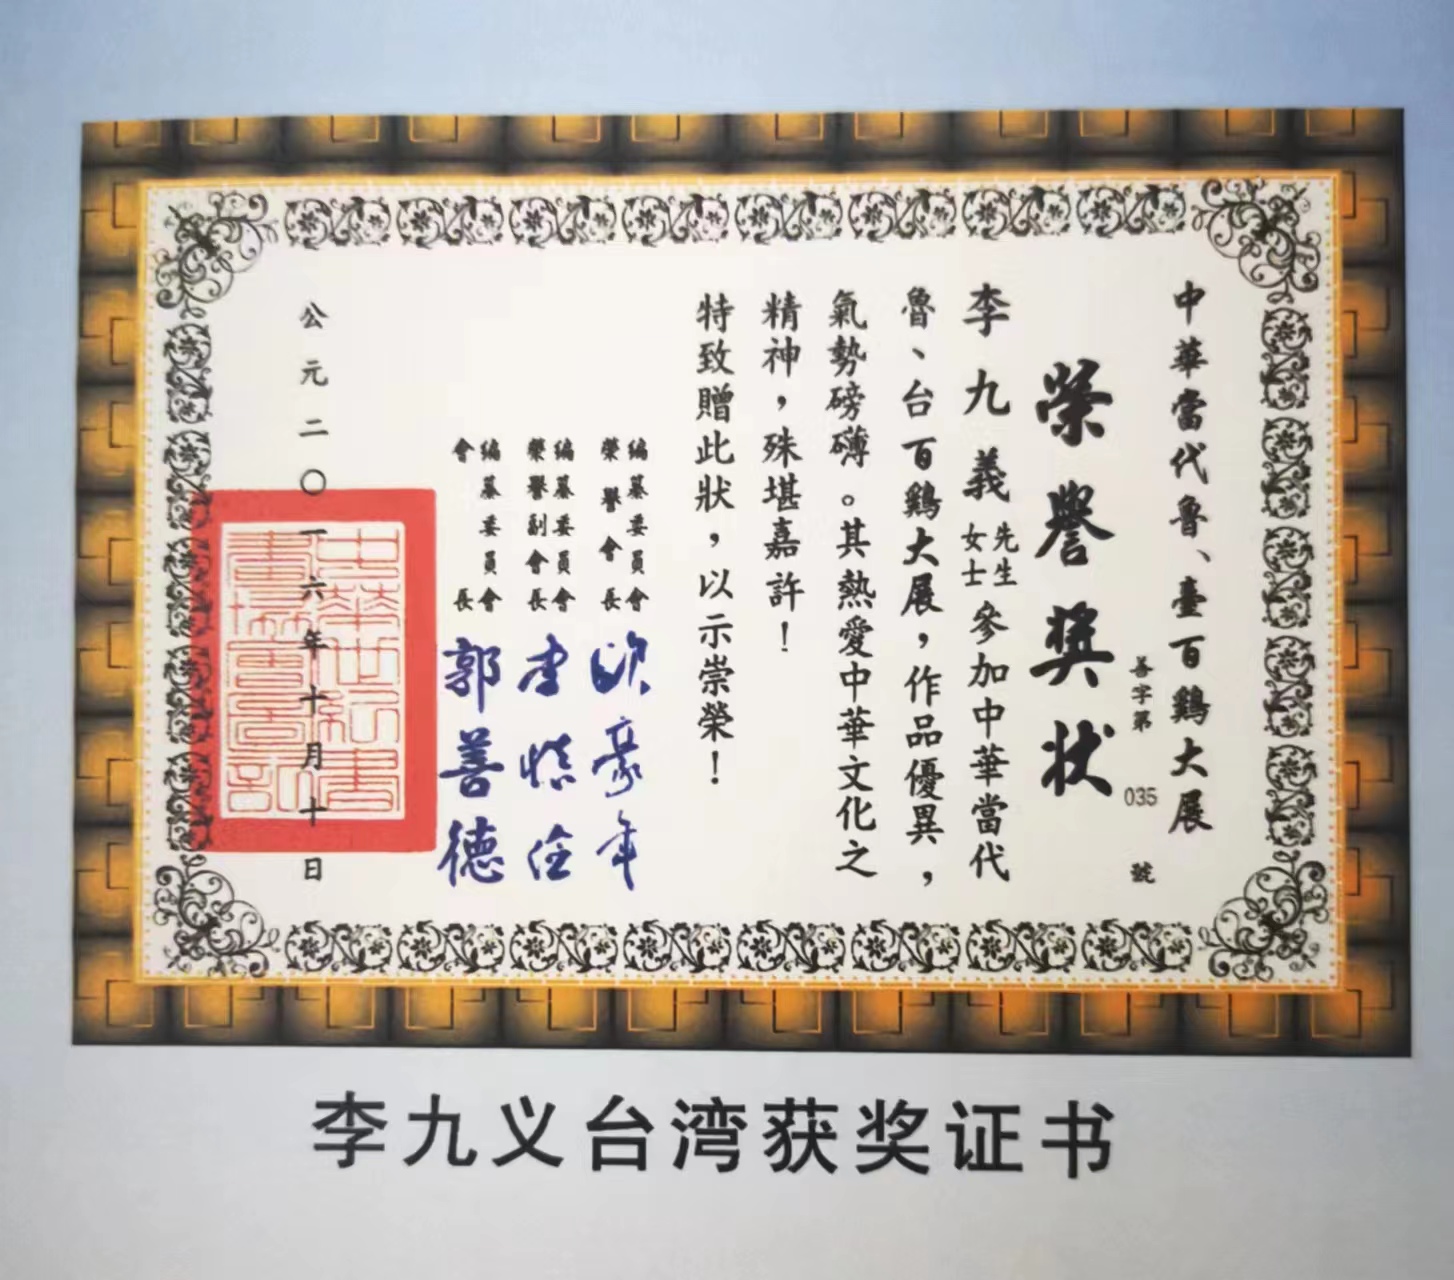 中華當代魯、臺百鷄大展
善字第 035 號
榮譽奬状
李九義 先生 女士 參加中華當代
魯、台百鷄大展，作品優異，
氣勢磅礴。其熱愛中華文化之
精神，殊堪嘉許！
特致贈此狀，以示崇榮！
編纂委員會
榮譽會長 豪年
編纂委員會
榮譽副會長 李
編纂委員會
會長 郭善德
公元二〇一六年十月十日
李九义台湾获奖证书